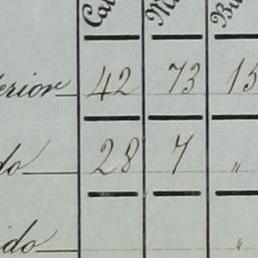 Ca M Bu
erior 42 73 15
do 28 7 "
ido "